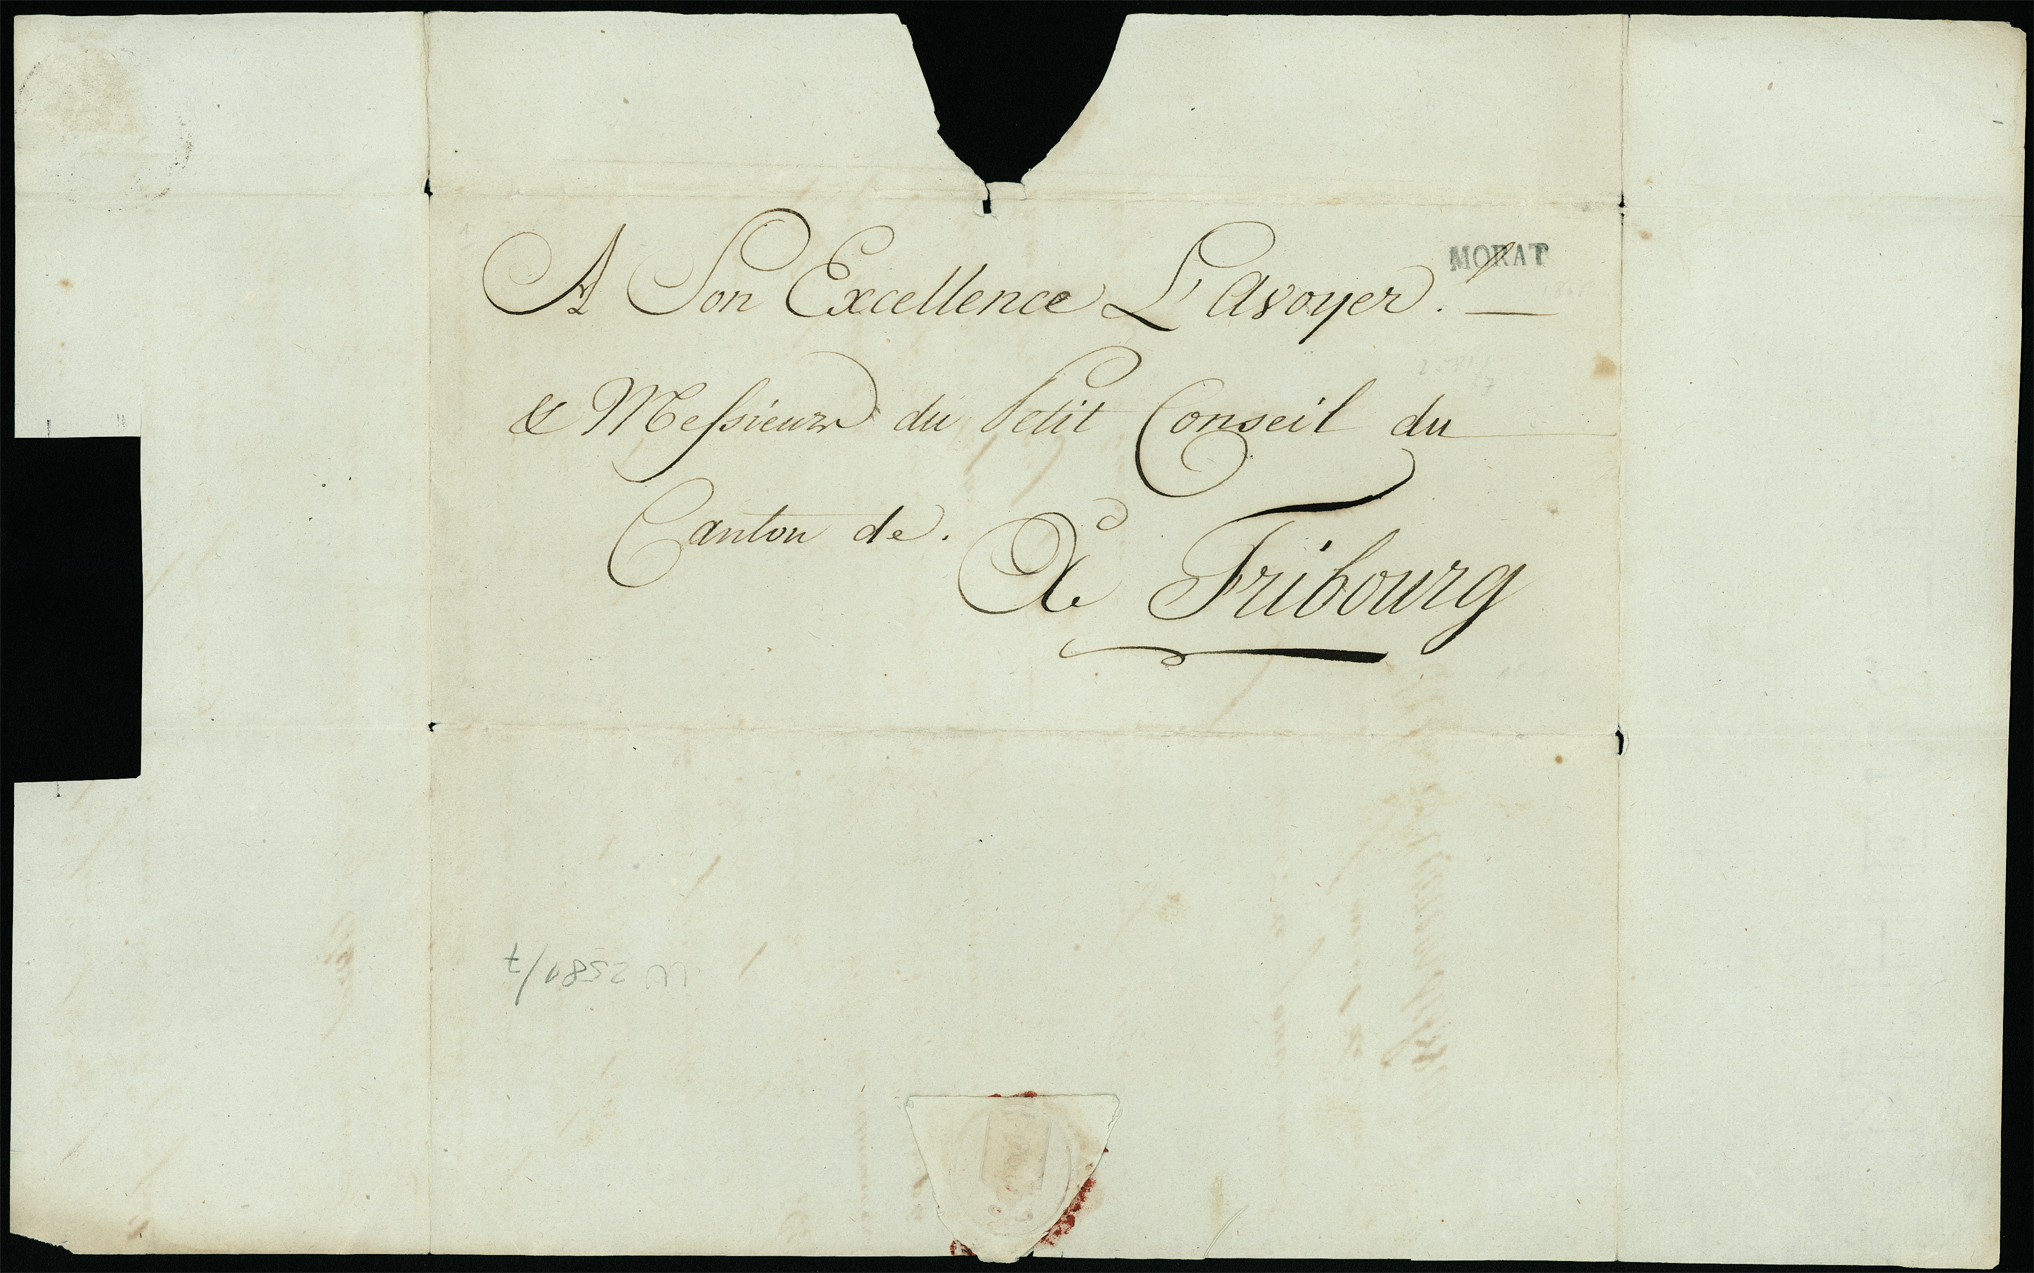 MORAT
A Son Excellence L'Avoyer. —
& Messieurs du Petit Conseil du
Canton de.
A Fribourg